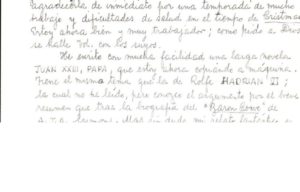 agradecerla de inmediato por una temporada de mucho
trabajo y dificultades de salud en el tiempo de Cristmas
Estoy ahora bien y muy trabajador; como pido a Dios
se halle Vd. con los suyos.
He escrito con mucha facilidad una larga novela
JUAN XXIII, PAPA, que estoy ahora copiando a máquina.
Tiene el mismo tema que la de Rolfe HADRIAN VII;
la cual no he leído, pero conozco el argumento por el breve
resumen que tras la biografía del "Baron Corvo" de
A.J.A. Symons. Mas sin duda mi relato fantástico es